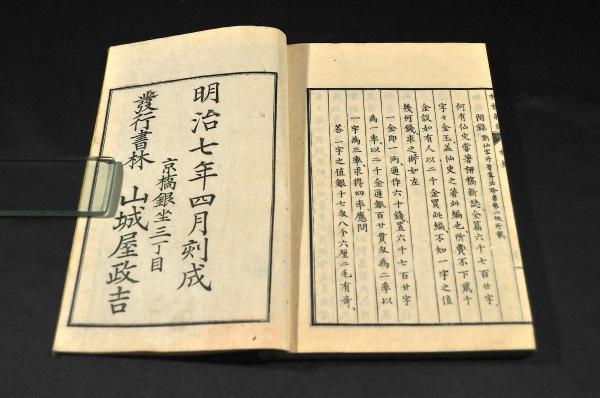 附錄
何有仙史當著柳橋新誌全篇六千七百廿字、
字々金玉蓋仙史之著此編也所費不下貳千
金設如有人以二千金買此編不知一字之值
幾何錢求之術如左
一金即一兩通作六十錢置六千七百廿字
為一率、以二千金通銀百廿貫匁為二率以
一字為三率求得四率、應問
答一字之值銀十七匁八分六厘二毛有奇、
明治七年四月刻成
京橋銀坐三丁目
發行書林 山城屋政吉